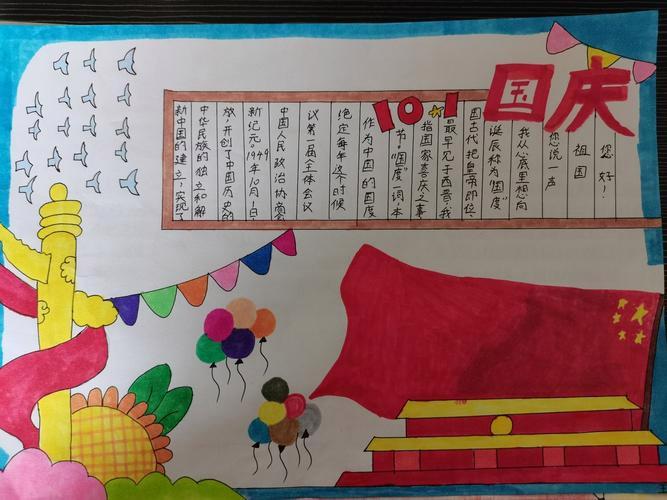 国庆
10 1
新中国的建立，实现了
中华民族的独立和解
放，开创了中国历史的
新纪元。1949年10月1日，
中国人民政治协商会
议第一届全体会议
绝定每年这个时候
作为中国的国度
节。"国度"一词，本
指国家喜庆之事、
最早见于西晋。我
国古代把皇帝即位、
诞辰称为"国度"
我从心底里想向
您说一声
祖国
您好！